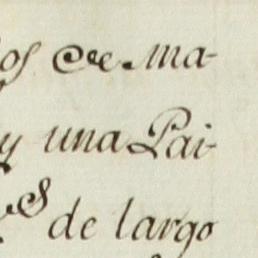 os de ma-
y una Pai-
s de largo